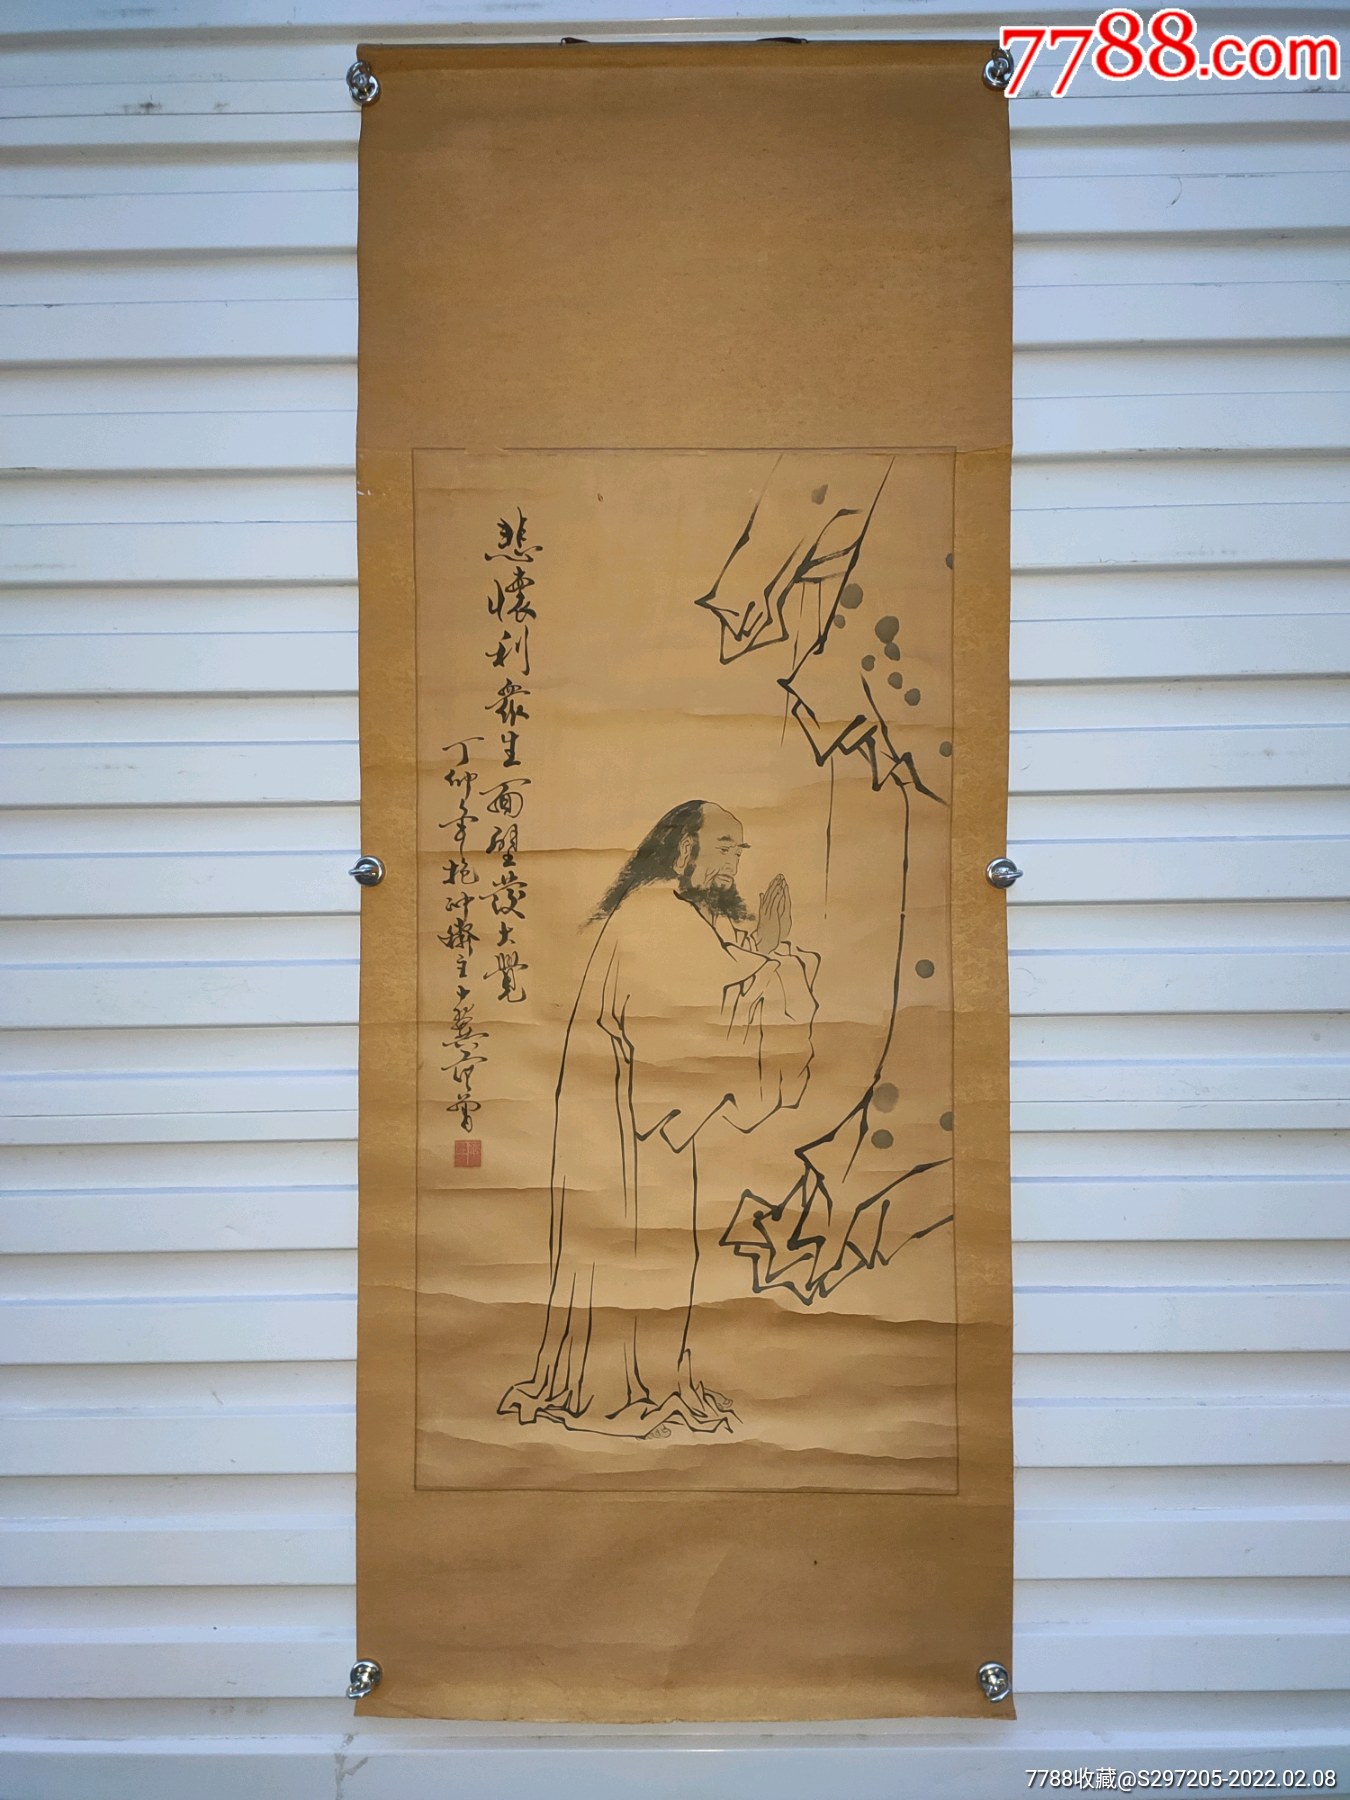 7788.com
悲懷利衆生面壁發大覺
丁卯年抱冲齋主十翼范曾
7788收藏@S297205-2022.02.08